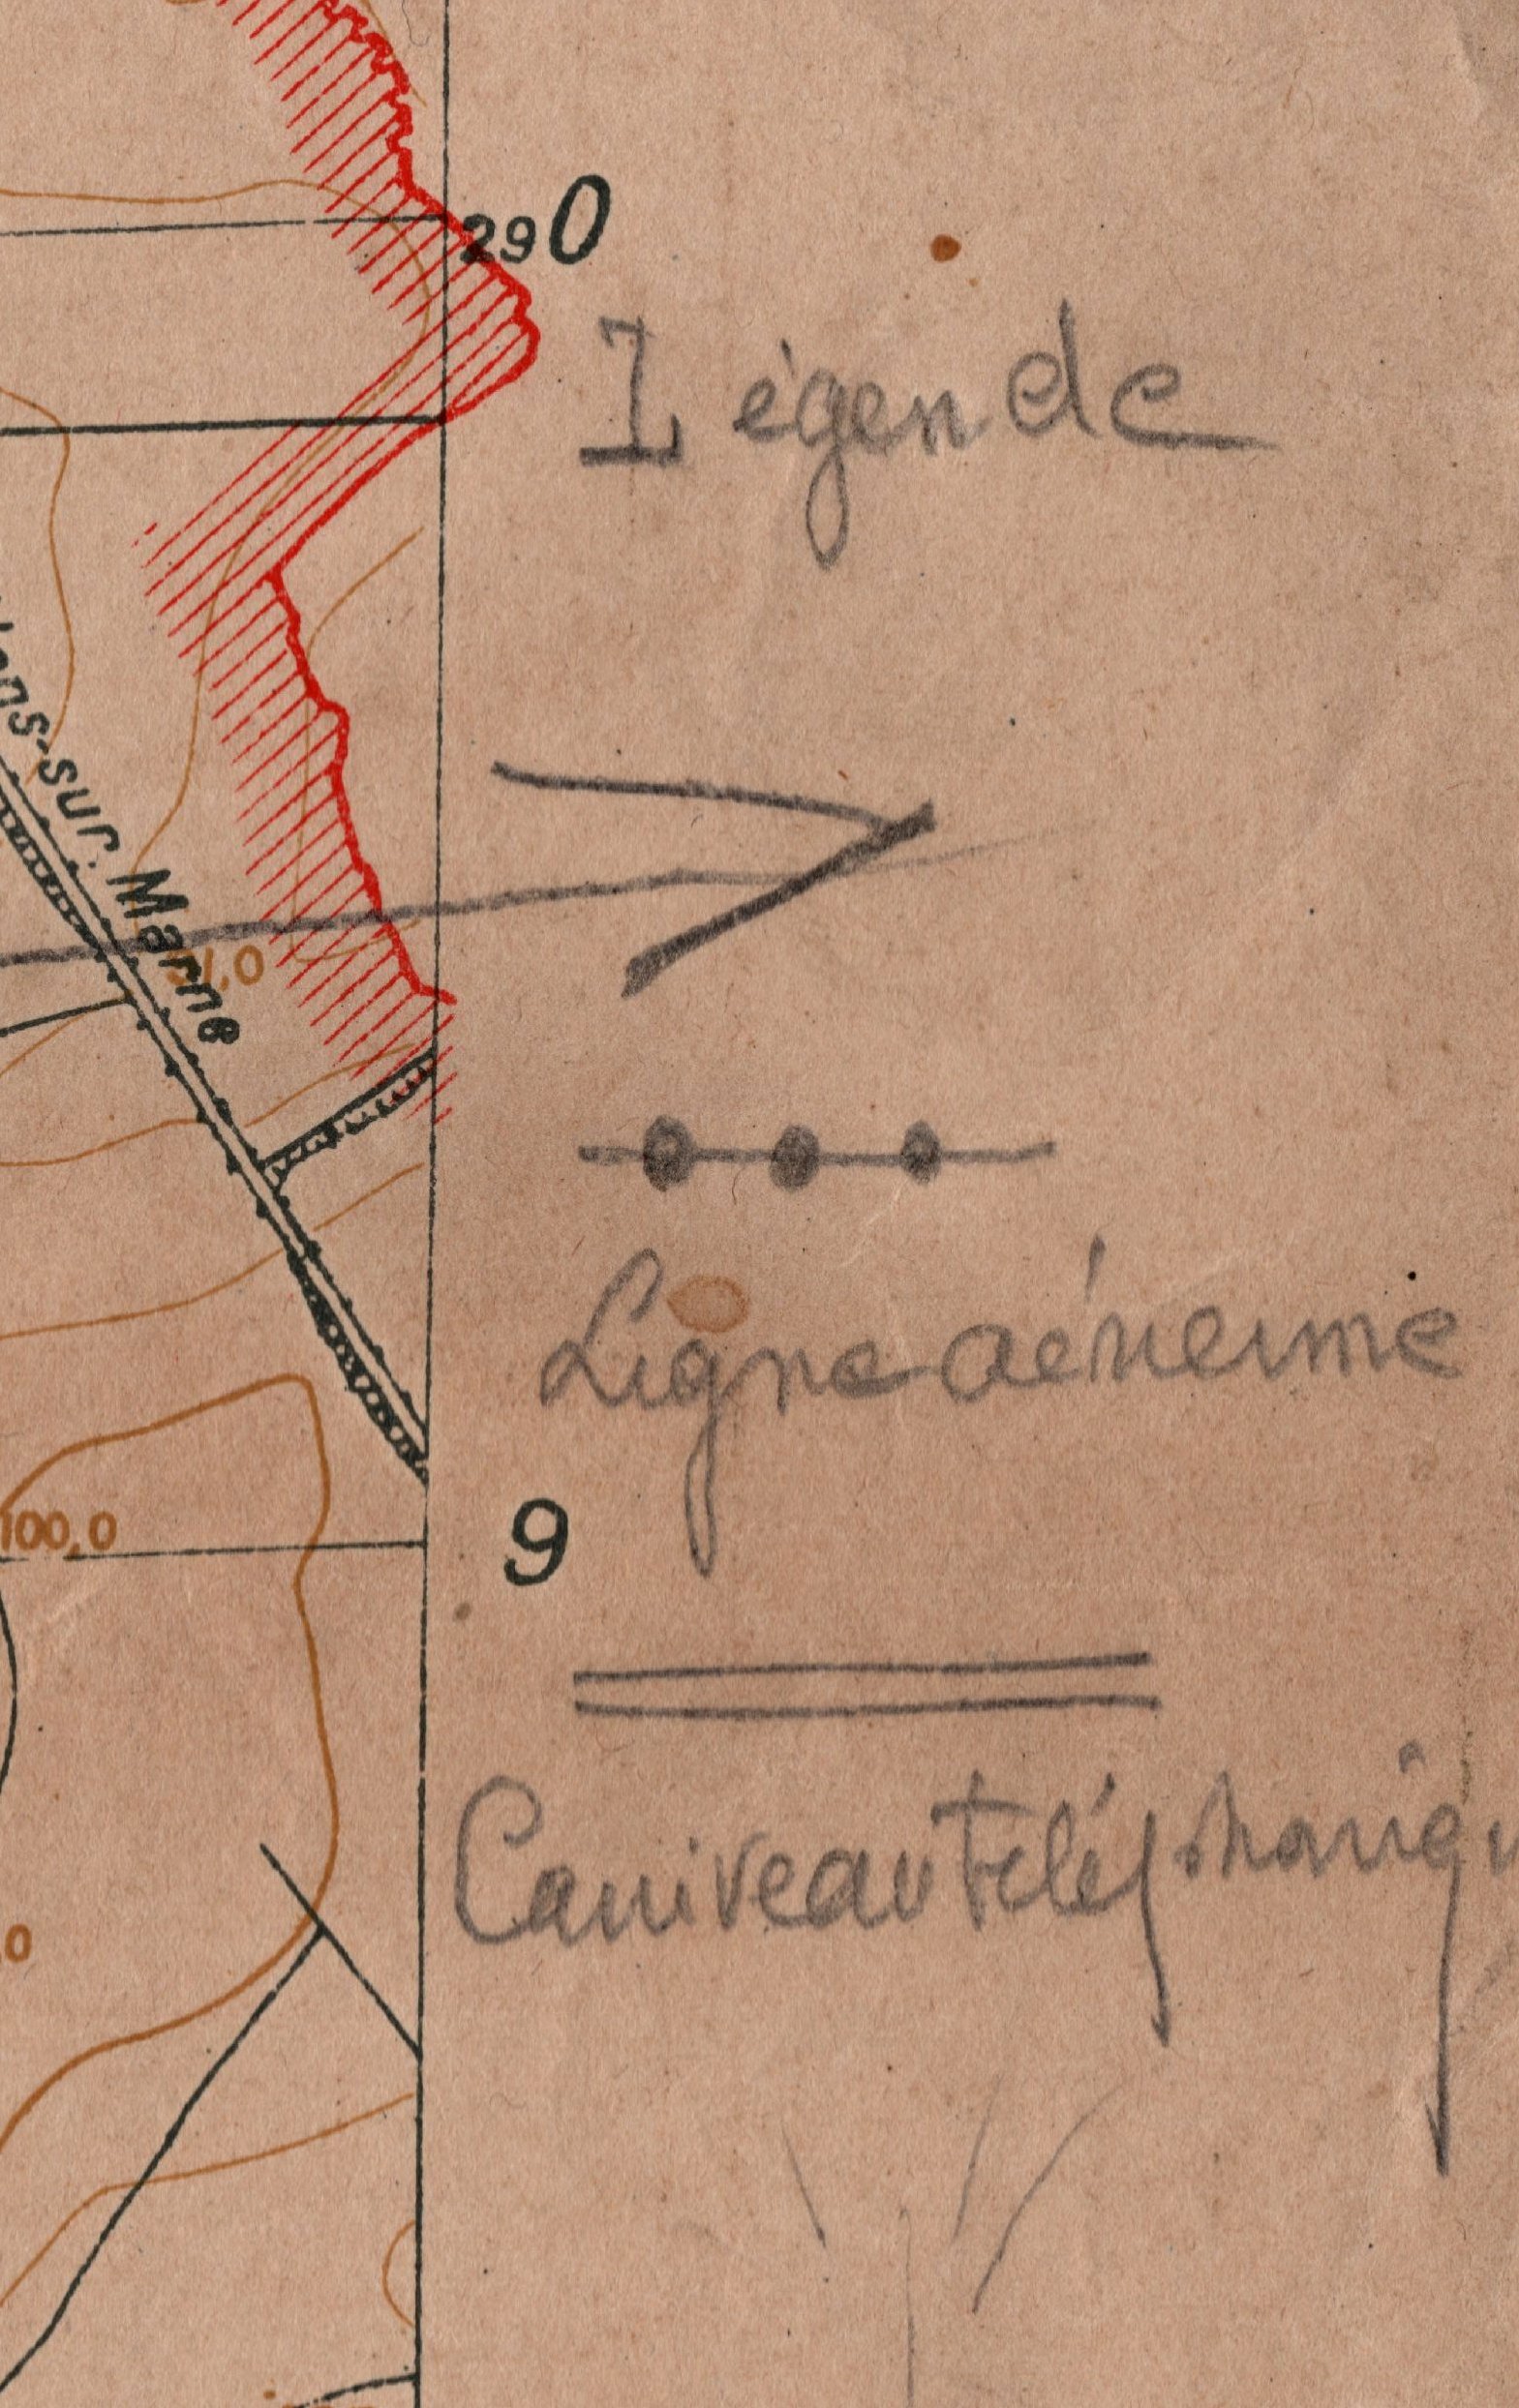 290
Légende
lons-sur-Marne
91,0
Ligne aérienne
9
100,0
Caniveau Téléphoniqu
0